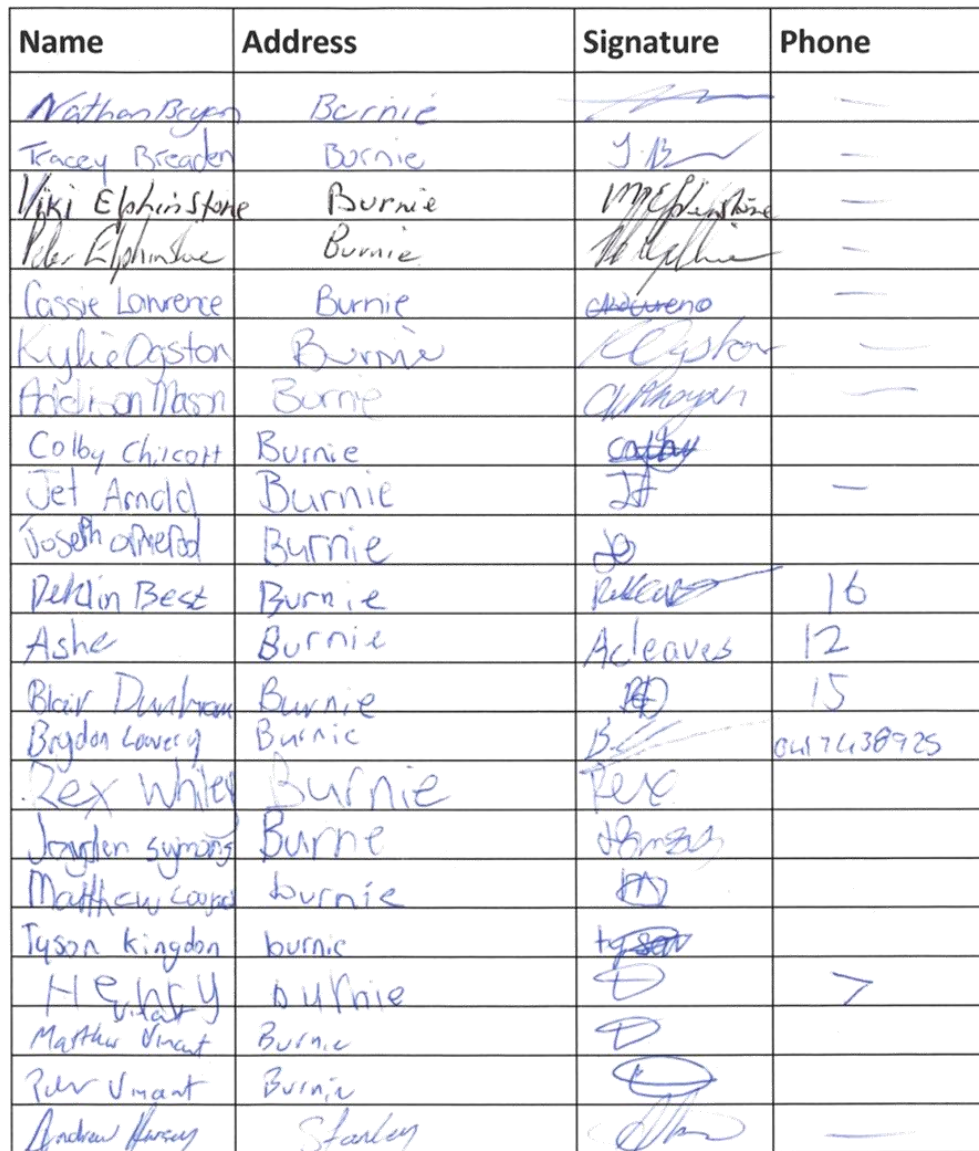 Name Address Signature Phone
Nathan Bryan Burnie —
Tracey Breaden Burnie T.B —
Viki Elphinstone Burnie MElphinstone —
Peter Elphinstone Burnie —
Cassie Lawrence Burnie —
Kylie Ogston Burnie KOgston —
Addison Mason Burnie —
Colby Chilcott Burnie
Jet Arnold Burnie —
Joseph Burnie Jo
Deklin Best Burnie 16
Ashe Burnie Acleaves 12
Blair Dunham Burnie BD 15
Brydon Lowery Burnie
Rex Whiley Burnie Rex
Jayden Symons Burne
Matthew Burnie
Tyson kingdon burnie tyson
Henry Vincent burnie
Matthew Vincent Burnie
Peter Vincent Burnie
Andrew Stanley —